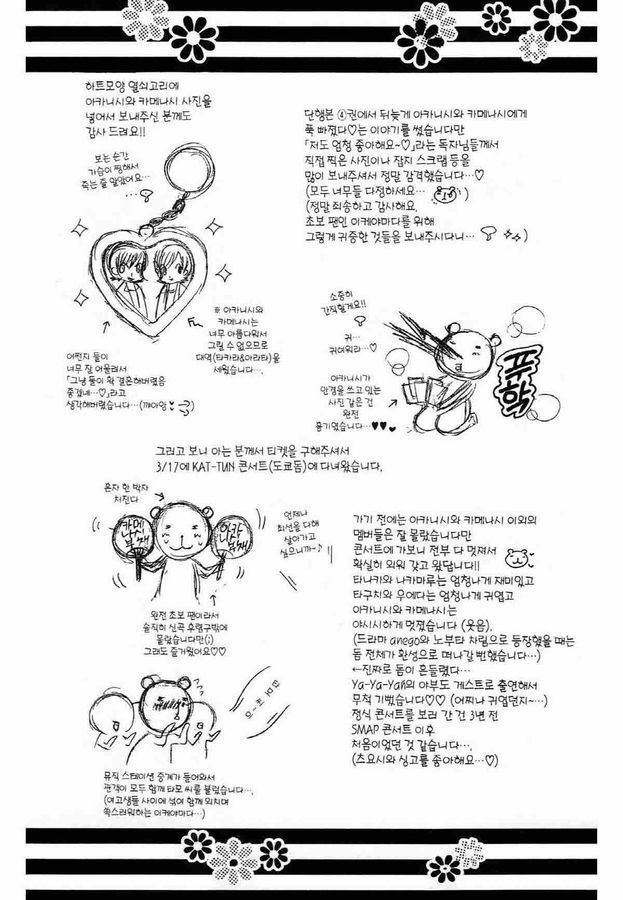 하트모양 열쇠고리에
아카니시와 카메나시 사진을
넣어서 보내주신 분께도
감사 드려요!!
보는 순간
가슴이 찡해서
죽는 줄 알았어요…
※ 아카니시와
카메나시는
너무 아름다워서
그릴 수 없으므로
대역(타카라&아라타)을
세웠습니다….
어쩐지 둘이
너무 잘 어울려서
「그냥 둘이 확 결혼해버렸음
좋겠네…♡」라고
생각해버렸습니다…(꺄아앙♥
단행본 ④권에서 뒤늦게 아카니시와 카메나시에게
푹 빠졌다♡는 이야기를 썼습니다만
「저도 엄청 좋아해요~♡」라는 독자님들께서
직접 찍은 사진이나 잡지 스크랩 등을
많이 보내주셔서 정말 감격했습니다…♡
(모두 너무들 다정하세요…)
(정말 죄송하고 감사해요.
초보 팬인 이케야마다를 위해
그렇게 귀중한 것들을 보내주시다니…)
소중히
간직할게요!!
귀…
귀여워라…♡
아카니시가
안경을 쓰고 있는
사진 같은 건
완전
용기였습니다…♥♥♥
푸학
그리고 보니 아는 분께서 티켓을 구해주셔서
3/17에 KAT-TUN 콘서트(도쿄돔)에 다녀왔습니다.
혼자 한 박자
처진다
카메나시
부채
아카니시
부채
언제나
최선을 다해
살아가고
싶으니까~♪
완전 초보 팬이라서
솔직히 신곡 후렴구밖에
몰랐습니다만(;)
그래도 즐거웠어요♡♡
가기 전에는 아카니시와 카메나시 이외의
멤버들은 잘 몰랐습니다만
콘서트에 가보니 전부 다 멋져서
확실히 외워 갖고 왔답니다!!
타나카와 나카마루는 엄청나게 재미있고
타구치와 우에다는 엄청나게 귀엽고
아카니시와 카메나시는
야시시하게 멋졌습니다 (웃음).
(드라마 anego와 노부타 차림으로 등장했을 때는
돔 전체가 환성으로 떠나갈 뻔했습니다…)
←진짜로 돔이 흔들렸다…
Ya-Ya-Yah의 야부도 게스트로 출연해서
무척 기뻤습니다♡♡ (어찌나 귀엽던지~…)
정식 콘서트를 보러 간 건 3년 전
SMAP 콘서트 이후
처음이었던 것 같습니다….
(츠요시와 싱고를 좋아해요…♡)
뮤직 스테이션 중계가 들어와서
관객이 모두 함께 타모 씨를 불렀습니다….
(여고생들 사이에 섞여 함께 외치며
쑥스러워하는 이케야마다…)